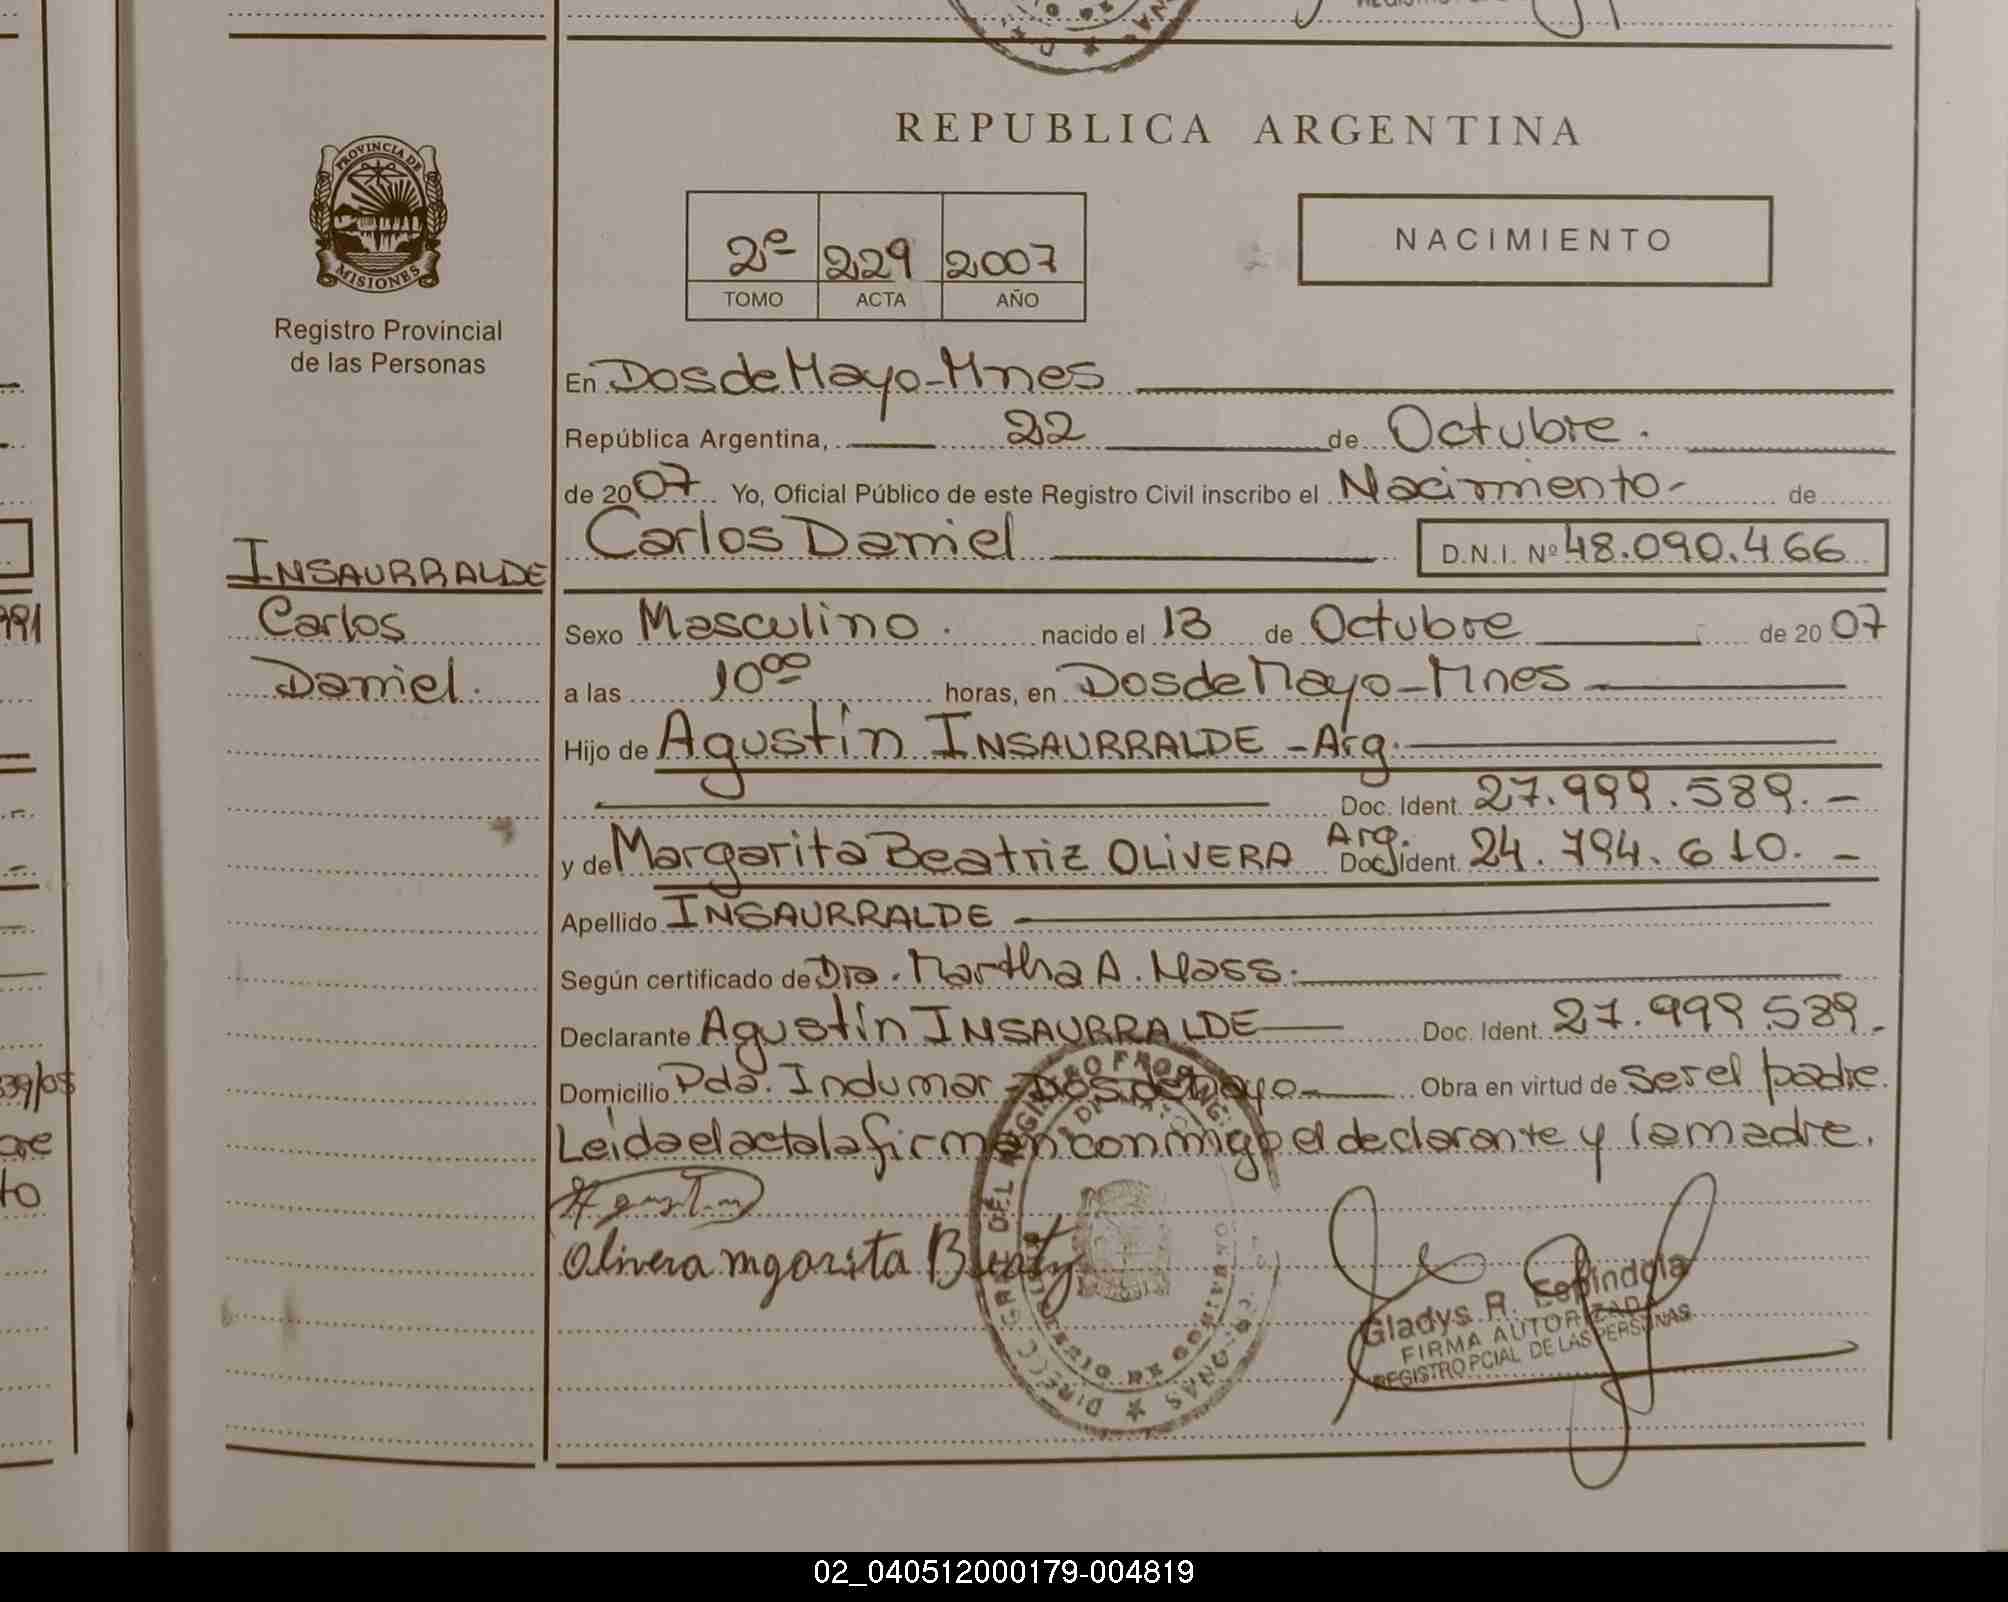 REPUBLICA ARGENTINA
PROVINCIA DE
MISIONES
Registro Provincial
de las Personas
2º 229 2007
TOMO ACTA AÑO
NACIMIENTO
En Dos de Mayo - Mnes
República Argentina, 22 de Octubre.
de 2007 Yo, Oficial Público de este Registro Civil inscribo el Nacimiento - de
Carlos Daniel D.N.I. Nº 48.090.466
INSAURRALDE
Carlos
Daniel.
Sexo Masculino. nacido el 13 de Octubre de 2007
a las 10⁰⁰ horas, en Dos de Mayo - Mnes
Hijo de Agustín INSAURRALDE - Arg.
Doc. Ident. 27.999.589. -
y de Margarita Beatriz OLIVERA Arg. Doc. Ident. 24.794.610. -
Apellido INSAURRALDE
Según certificado de Dra. Martha A. Mass.
Declarante Agustín INSAURRALDE Doc. Ident. 27.999.589. -
Domicilio Pda. Indumar - Dos de Mayo Obra en virtud de ser el padre.
Leída el acta la firman conmigo el declarante y la madre.
Olivera mgarita
Gladys R. Espindola
FIRMA AUTORIZADA
REGISTRO PCIAL DE LAS PERSONAS
991
02_040512000179-004819